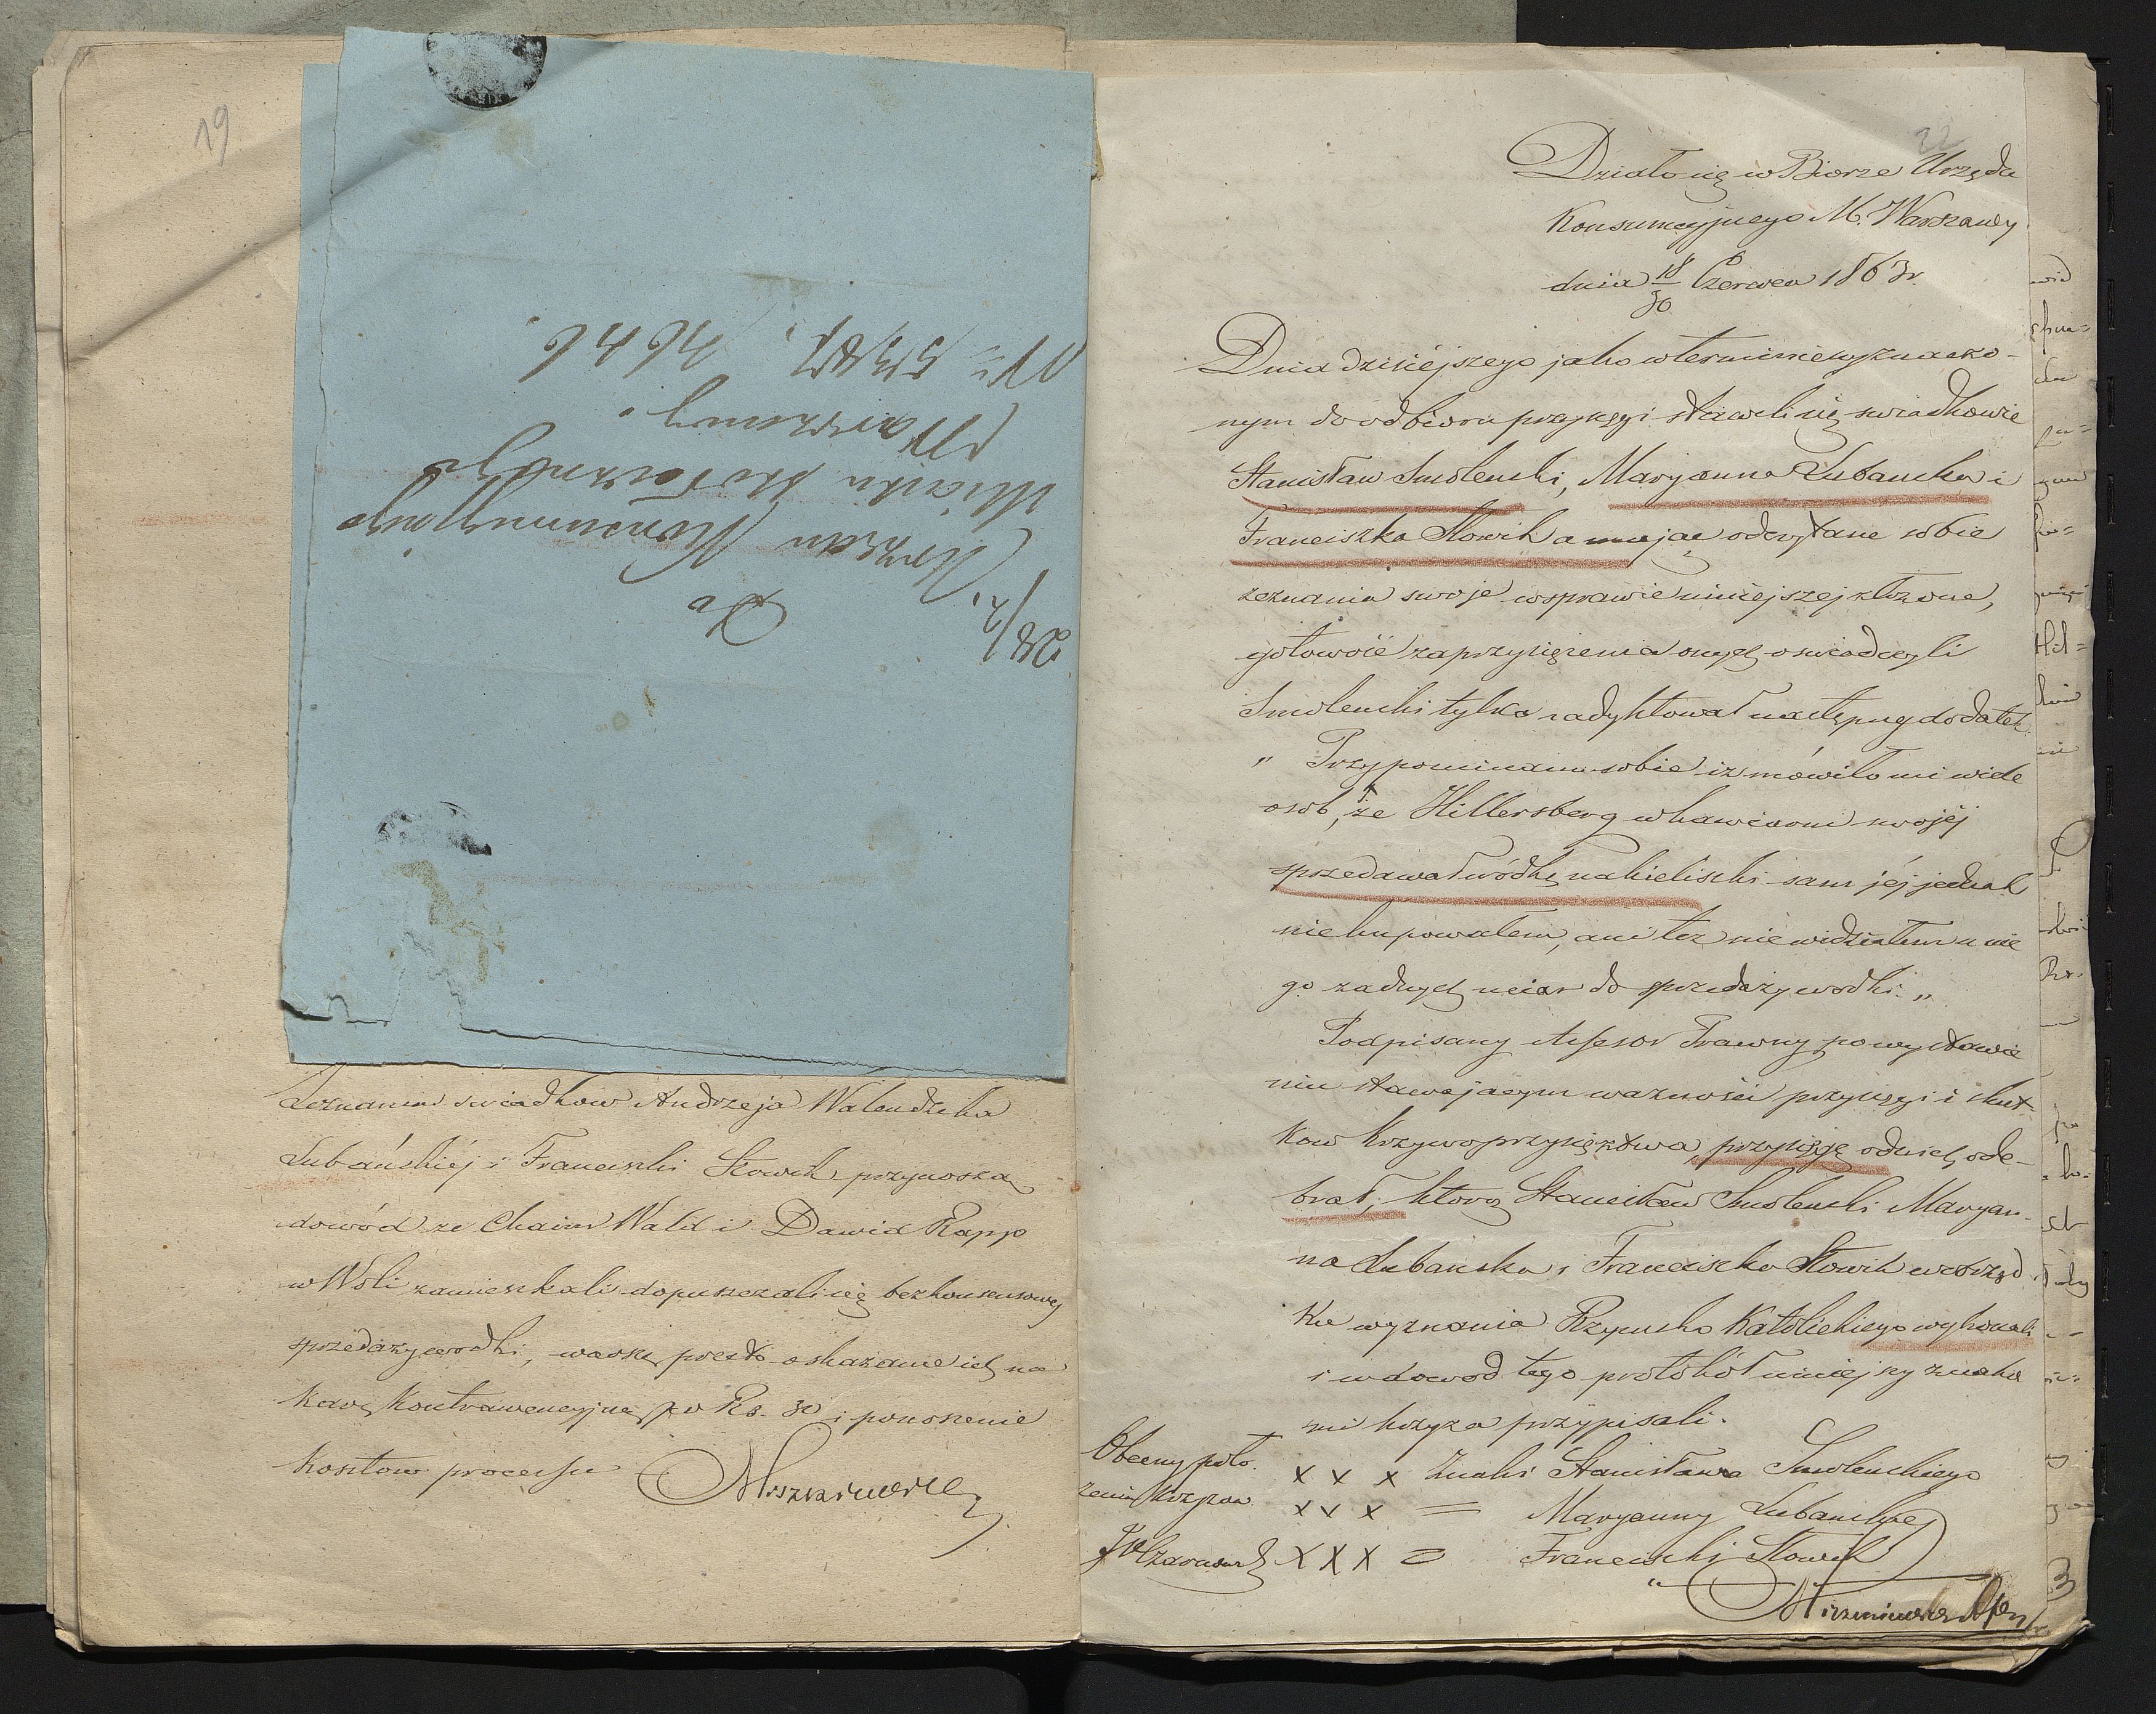 19
28/7.
Do
Urzędu Konsumcyjnego
Miasta Stołecznego
Warszawy.
Zeznania swiadkow Andrzeja Walendzika
Lubańskiéj i Franciszki Słowik przynoszą
dowód ze Chaim Wald i Dawid Rapp
w Woli zamieszkali dopuszczali się bezkonsensowej
sprzedaży wodki, wnoszę przeto o skazanie ich na
karę kontrawencyjną po Rs. 30 i ponoszenie
kosztow processu
22
Działo się w Biorze Urzędu
Konsumcyjnego M. Warszawy
dnia 18/30 Czerwca 1863 r.
Dnia dzisiéjszego jako w terminie wyznaczo-
nym do odbioru przysięgi stawili się swiadkowie
Stanisław Smolenski, Maryanna Lubanska i
Franciszka Słowik a mając odczytane sobie
zeznania swoje w sprawie niniejszej złożone,
gotowość zaprzysiężenia onych oswiadczyli
Smolenski tylko zadyktował następny dodatek
„ Przypominam sobie iz mówiło mi wiele
osob, że Hillersberg w kawiarni swojéj
sprzedawał wódkę na kieliszki sam jéj jednak
nie kupowałem, ani tez nie widziałem u nie
go zadnych miar do sprzedaży wodki „
Podpisany Assesor Prawny po wystawie
niu stawającym wazności przysięgi i skut-
kow krzywoprzysięztwa, przysięgę od nich ode-
brał, którą Stanisław Smolenski Maryan-
na Lubanska i Franciszka Słowik w obrząd
ku wyznania Rzymsko Katolickiego wykonali
i w dowod tego protokół niniejszy znaka
mi krzyza przypisali.
Obecny poło
zeniu krzyzow
x x x Znaki Stanisława Smolenskiego
x x x = Maryanny Lubanskiej
x x x = Franciszki Słowik